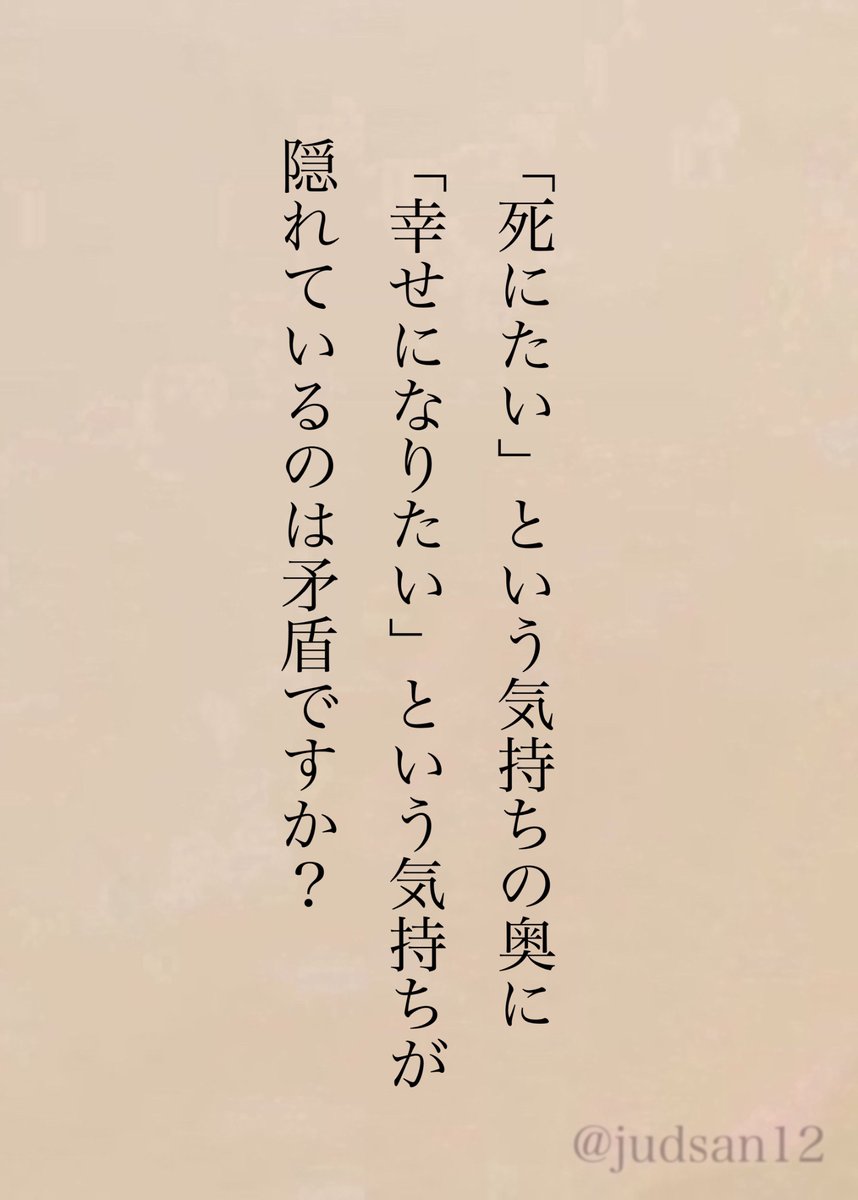 「死にたい」という気持ちの奥に
「幸せになりたい」という気持ちが
隠れているのは矛盾ですか？
@judsan12